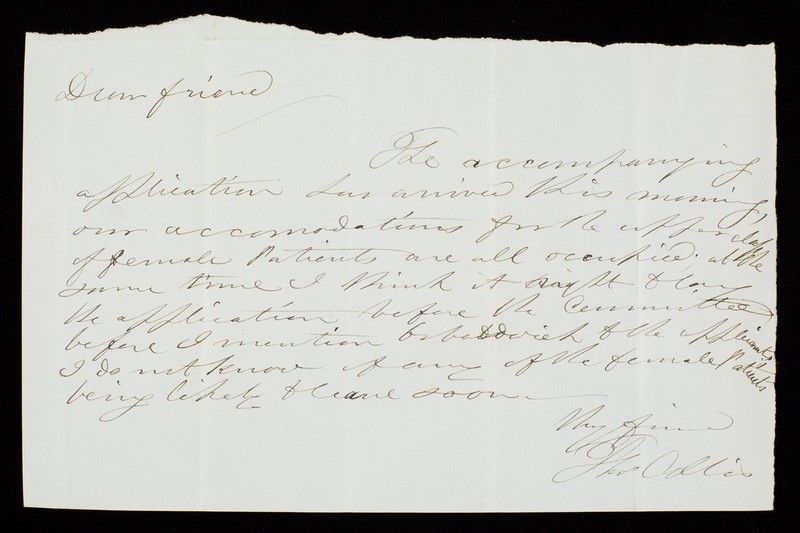 Dear friend
The accompanying
application has arrived this morning,
our accomodations for the upper class
of female Patients are all occupied; at the
same time I think it right to lay
the application before the Committee
before I mention to the applicants.
I do not know of any of the female Patients
being likely to leave soon.
Thy friend
Thos Allis